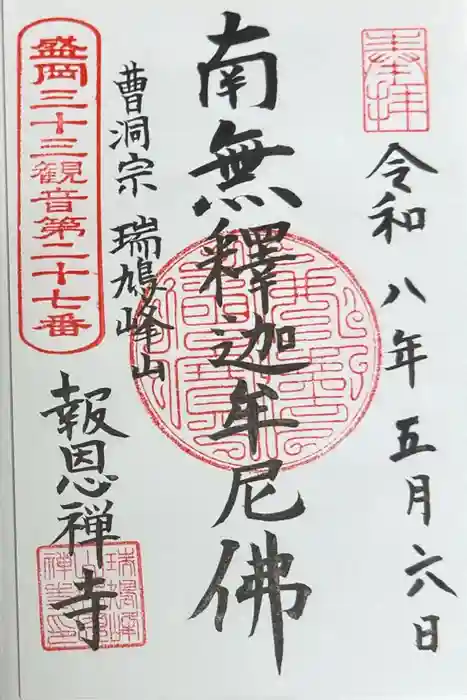 奉拝
令和八年五月六日
南無釋迦牟尼佛
曹洞宗 瑞鳩峰山
報恩禅寺
盛岡三十三観音第二十七番